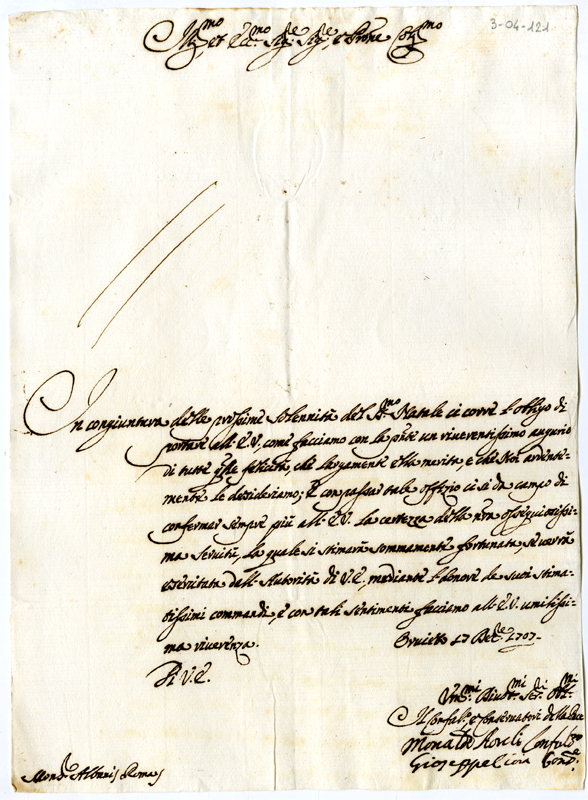 3-04-121
Ill.mo et Ecc.mo Sig.e Sig.e e Prone Col.mo
In congiuntura delle prossime solennità del S.mo Natale ci corre l'obligo di
portare all'E.V. come facciamo con la pnte un riverentissimo augurio
di tutte q.lle felicità, che largamente ella merita e che Noi ardente-
mente le desideriamo; E con passar tale offizio ci si dà campo di
confermar sempre più all'E.V. la certezza della nra ossequiosissi-
ma servitù, la quale si stimarà sommamente fortunata se verrà
esercitata dall'Autorità di V.E., mediante l'honore de suoi stima-
tissimi commandi, e con tali sentimenti facciamo all'E.V. umilissi-
ma riverenza.
Orvieto 17 Dec.re 1707
Di V.E.
Um.mi Divot.mi Ser.ri Obl.mi
Il Confal.re e Conservatori della
Confal.re
Gioseppe Cons.re
Mons.r Albani Roma